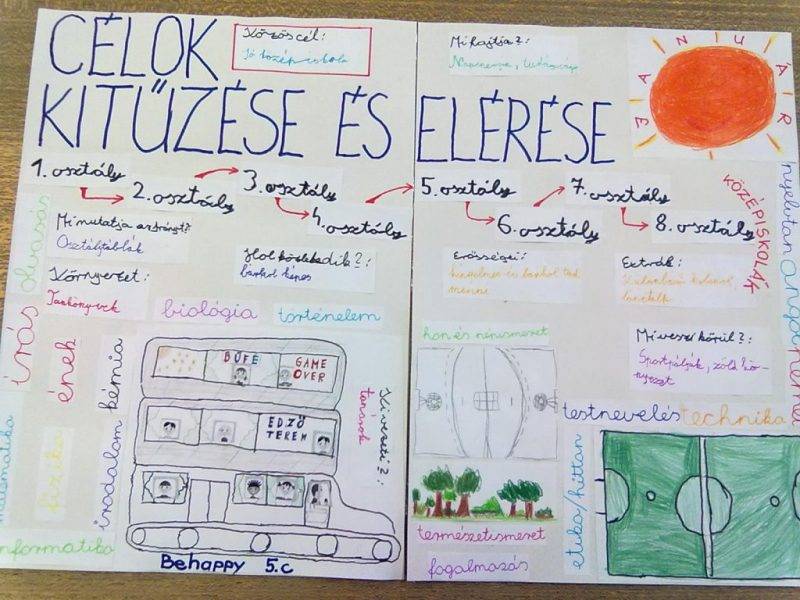 CÉLOK
KITŰZÉSE ÉS ELÉRÉSE
Közös cél:
Jó középiskola
Mi hajtja?:
Napenergia, tudásvágy
TANUÁR
1. osztály
2. osztály
3. osztály
4. osztály
5. osztály
6. osztály
7. osztály
8. osztály
KÖZÉPISKOLÁK
Mi mutatja az irányt?
Osztálytáblák
Hol közlekedik?:
bárhol képes
Környezet:
Tankönyvek
Erősségei:
kényelmes és bárhol tud
menni
Extrák:
Különböző
Mi veszi körül?:
Sportpályák, zöld kör-
nyezet
olvasás
írás
ének
biológia
történelem
hon és népismeret
nyelvtan
angol
német
matematika
fizika
irodalom
kémia
informatika
BÜFÉ
GAME
OVER
EDZŐ
TEREM
Ki vezeti?:
tanárok
Behappy 5.c
természetismeret
fogalmazás
testnevelés
technika
etika/hittan